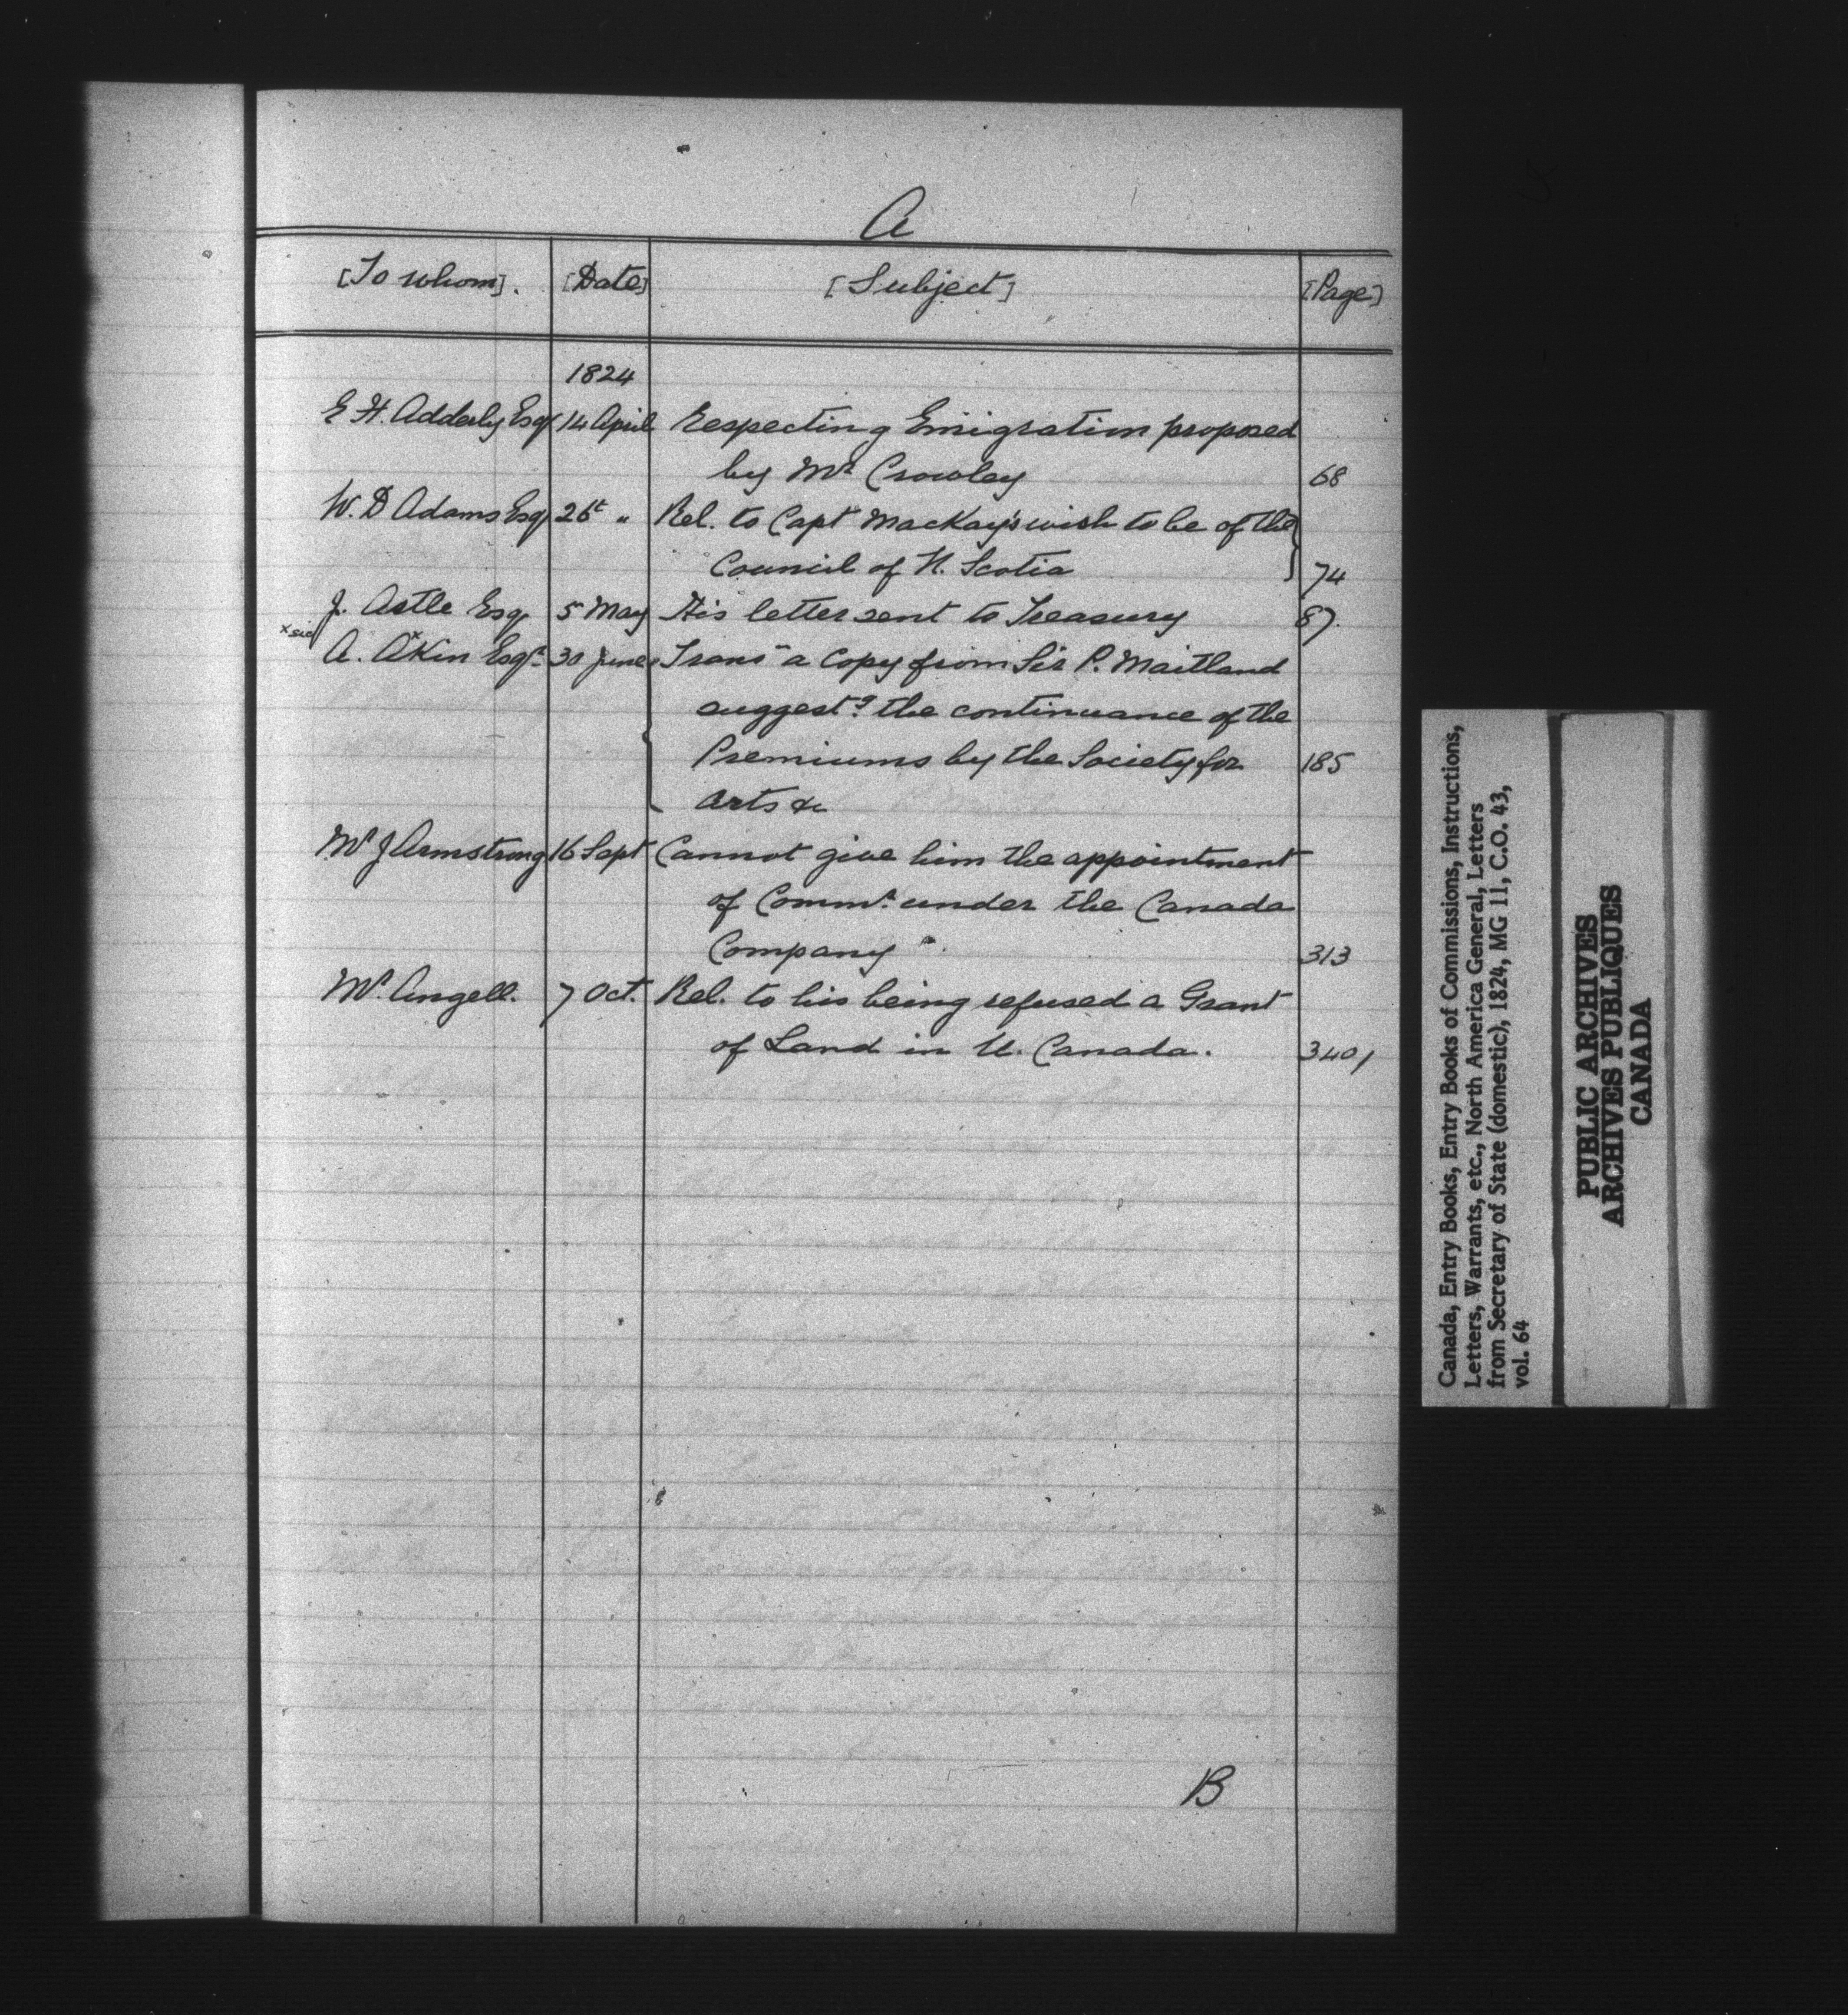 A
[To whom]. [Date] [Subject] [Page]
1824
E H. Adderly Esqr 14 April Respecting Emigration proposed
by Mr Crowley 68
W. D Adams Esq 26t " Rel. to Capt MacKay's wish to be of the
Council of N. Scotia 74
J. Astle Esq 5 May His letter sent to Treasury 87.
x sic
A. AxKin Esqr 30 June Trans~ a Copy from Sir P. Maitland
suggestg the continuance of the
Premiums by the Society for 185
Arts &c
Mr J Armstrong 16 Sept Cannot give him the appointment
of Commr. under the Canada
Company 313
Mr. Angell. 7 Oct. Rel. to his being refused a Grant
of Land in U. Canada. 340
B
Canada, Entry Books, Entry Books of Commissions, Instructions,
Letters, Warrants, etc., North America General, Letters
from Secretary of State (domestic), 1824, MG 11, C.O. 43,
vol. 64
PUBLIC ARCHIVES
ARCHIVES PUBLIQUES
CANADA